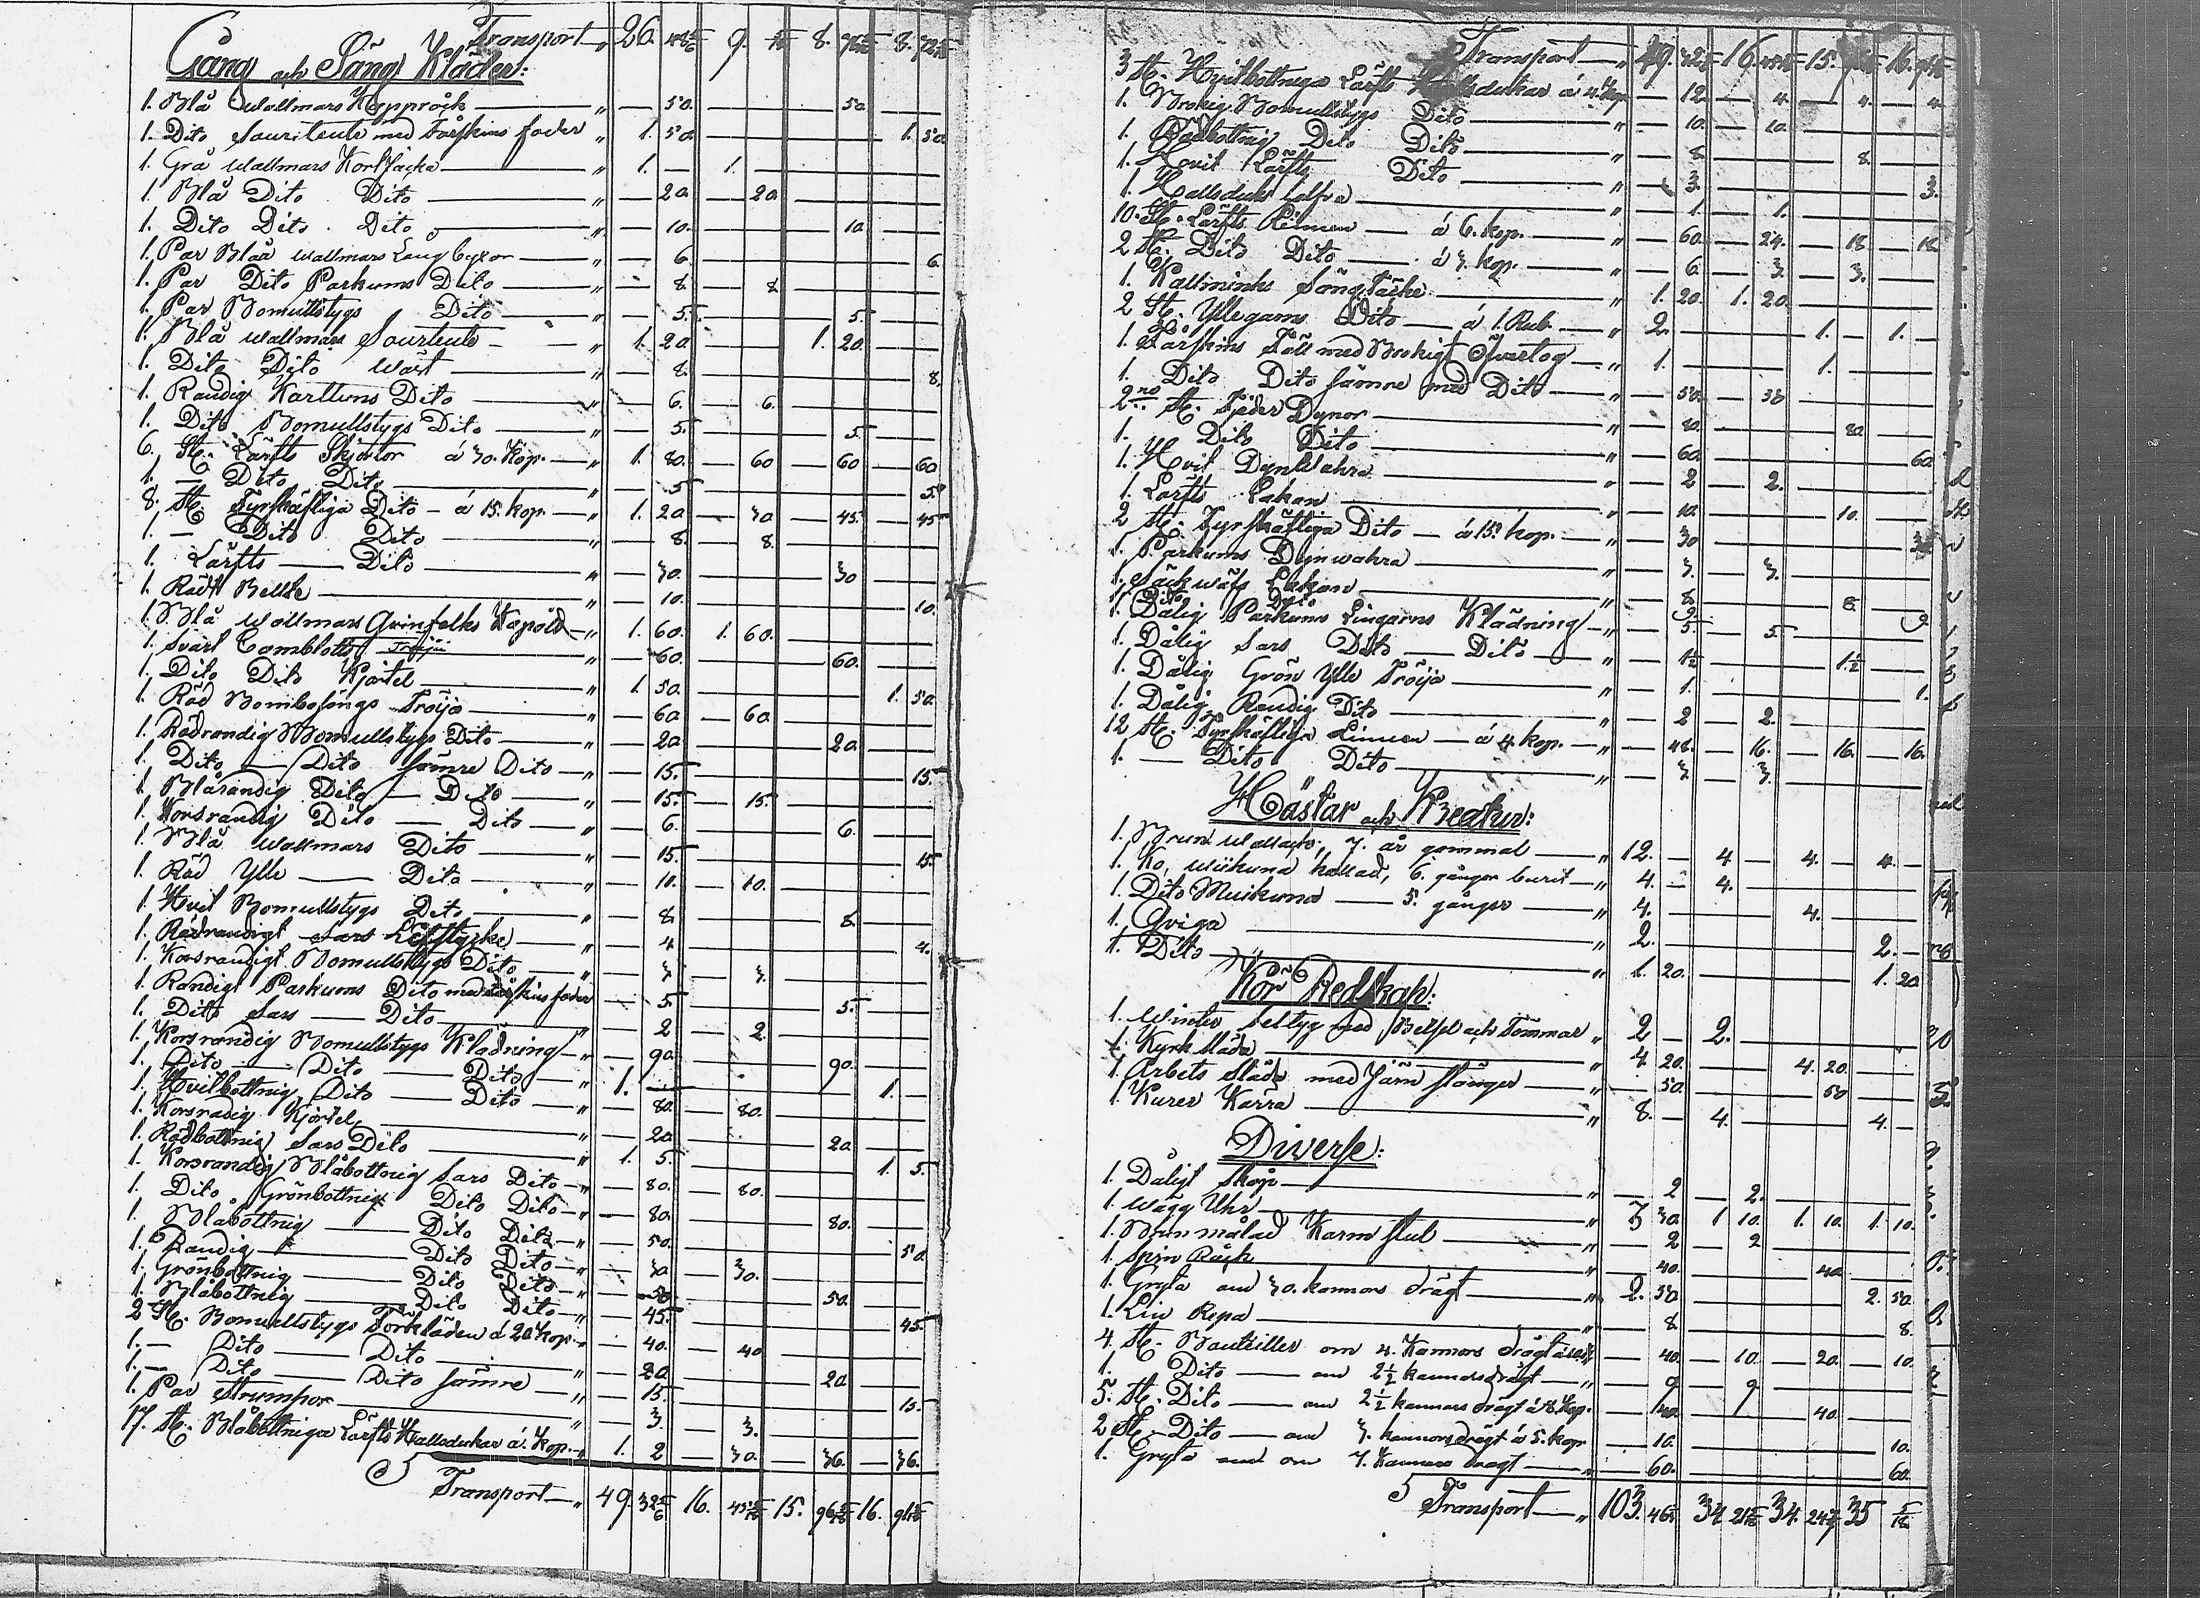 Transport — „ 26. 9. 8. 8.
Gång och Säng Kläder:
1. Blå Wallmars Kapprock — „ — 50. — 50
1. Dito Sourteute med Fårskins foder „ 1. 50. — 1. 50
1. Grå Wallmars Kortjacka — „ 1. — 1.
1. Blå Dito Dito — „ — 20 — 20
1. Dito Dito Dito — „ — 10. — 10.
1. Par Blåa Wallmars Lång byxor — „ — 6. — 6.
1. Par Dito Parkums Dito — „ — 8. — 8.
1. Par Bomullstygs Dito — „ — 5. — 5.
1. Blå Wallmars Sourteute — „ 1. 20 1. 20.
1. Dito Dito Wäst — „ — 8. — 8.
1. Randig Kattuns Dito — „ — 6. — 6.
1. Dito Bomullstygs Dito — „ — 5. — 5.
6. St: Lärfts Skjortor á 30. Kop. — „ 1. 80. — 60 — 60 — 60
1. — Dito Dito — „ — 5 — 5.
8. St: Fyrskäftiga Dito — á 15. kop. — „ 1. 20 — 30 — 45. — 45
1. — Dito Dito — „ — 8. — 8.
1. Lärfts — Dito — „ — 30. — 30
1. Rådt Bellte — „ — 10. — 10.
1. Blå Wallmars Qvinfolks Kapåld — „ 1. 60. 1. 60.
1. Svart Camblotts Tröija — „ — 60. — 60.
1. Dito Dito Kjortel — „ 1. 50. — 1. 50
1. Röd Bombasängs Tröija — „ — 60 — 60.
1. Rödrandig Bomullstygs Dito — „ — 20 — 20.
1. Dito — Dito sämre Dito — „ — 15. — 15.
1. Blårandig Dito — Dito — „ — 15. — 15.
1. Korsrandig Dito — Dito — „ — 6. — 6.
1. Blå Wallmars Dito — „ — 15. — 15.
1. Röd Ylle — Dito — „ — 10. — 10.
1. Hvit Bomullstygs Dito — „ — 8. — 8.
1. Rödrandigt Sars Lifstycke — „ — 4 — 4.
1. Korsrandigt Bomullstygs Dito — „ — 3 — 3.
1. Randigt Parkums Dito med fårskins foder — 5. — 5.
1. Dito Sars — Dito — „ — 2 — 2.
1. Korsrandig Bomullstygs Klädning — „ — 90. — 90.
1. Dito — Dito — Dito — „ 1. — 1.
1. Hvitbottnig Dito — Dito — „ — 80. — 80.
1. Korsradig Kjortel — „ — 20. — 20.
1. Rödbottnig Sars Dito — „ 1. 5. — 1. 5.
1. Korsrandig Blåbottnig Sars Dito — „ — 80. — 80.
1. Dito Grönbottnig Dito Dito — „ — 80. — 80.
1. Blåbottnig — Dito Dito — „ — 50. — 50.
1. Randig — Dito Dito — „ — 30 — 30.
1. Grönbottnig — Dito Dito — „ — 50 — 50.
1. Blåbottnig — Dito Dito — „ — 45. — 45.
2 St: Bomullstygs Förkläden á 20 kop. — „ — 40. — 40
1. — Dito — Dito — „ — 20 — 20
1. — Dito — Dito sämre — „ — 15. — 15.
1. Par Strumpor — „ — 3. — 3.
17. St: Blåbottniga Lärfts Hallsdukar á kop. — „ 1. 2 — 30. — 36. — 36.
Transport — „ 49. 16. 15. 16.
Transport — „ 49. 16. 15. 16.
3 St: Hvitbottnega Lärfts Hallsdukar á 4. kop — 12 — 4. — 4. — 4.
1. Brokig Bomullstygs Dito — „ — 10. — 10.
1. Rödbottnig Dito Dito — „ — 8. — 8.
1. Hvit Lärfts Dito — „ — 3. — 3.
1. Hallsduks halfva — „ — 1. — 1.
10. St: Lärfts Linnen — á 6. kop. — „ — 60. — 24. — 18 — 18.
2 St: Dito Dito — á 3. kop. — „ — 6. — 3. — 3.
1. Kallminks Säng Täcke — „ 1. 20. 1. 20.
2 St: Yllegarns Dito — á 1. Rub. — „ 2. — 1. — 1.
1. Fårskins Fäll med Brokigt Öfvertog — „ 1. — 1.
1. Dito Dito sämre med Dito — „ — 50. — 50
2 St: Fjeder Dynor — „ — 80. — 80
1. Dito Dito — „ — 60. — 60.
1. Hvit Dynwahra — „ — 2 — 2.
1. Lärfts Lakan — „ — 10. — 10.
2 St: Fyrskäftiga Dito — á 15. kop. — „ — 30 — 30
1. Parkums Dynwahra — „ — 3. — 3.
1. Säckwäfs Lakan — „ — 8 — 8.
1. Dito Dito — 2 — 2
1. Dålig Parkums Lingarns Klädning — „ — 5. — 5.
1. Dålig Sars Dito — Dito — „ — 1½ — 1½
1. Dålig Grön Ylle Tröija — „ — 1. — 1.
1. Dålig Randig Dito — „ — 2 — 2.
12 St: Fyrskäftiga Linnen — á 4 kop. — „ — 48. — 16. — 16. — 16.
1. — Dito Dito — „ — 3. — 3.
Hästar och Kreatur:
1. Brun Wallack, 7. år gammal — „ 12. — 4. — 4. — 4. —
1. Ko, Wiikuna kallad, 6. gånger burit — „ 4. — 4.
1. Dito Muikuna — 5. gånger — „ 4. — 4.
1. Qviga — „ 2. — 2. —
1. Dito — „ 1. 20. — 1. 20
Kör Redskap:
1. Winter Seltyg med Betsel och Tömmar „ 2 — 2.
1. Kyrk Släda — „ 4 20. — 4. 20.
1. Arbets Släde med Järn stänger — „ — 50. — 50
1. Kurer Kärra — „ 8. — 4. — 4. —
Diverse:
1. Dåligt Skåp — „ — 2 — 2.
1. Wägg Uhr — „ 3 30. 1 10. 1. 10. 1. 10.
1. Brun målad Karm stol — „ — 2 — 2
1. Spin Råck — „ — 40. — 40
1. Gryta om 30. kannors drägt — „ 2. 50 — 2. 50.
1. Lin Repa — „ — 8. — 8.
4. St: Bouteiller om 4. Kannors drägt — 40. — 10. — 20. — 10.
1. Dito — om 2½ kannors drägt — „ — 9 — 9.
5. St: Dito — om 2½ kannors drägt á 8. kop. — 40. — 40.
2 St: Dito — om 3. kannors drägt á 5. kop — 10. — 10.
1. Gryta om 7. Kannors drägt — „ — 60. — 60.
Transport — „ 103. 34 34. 35